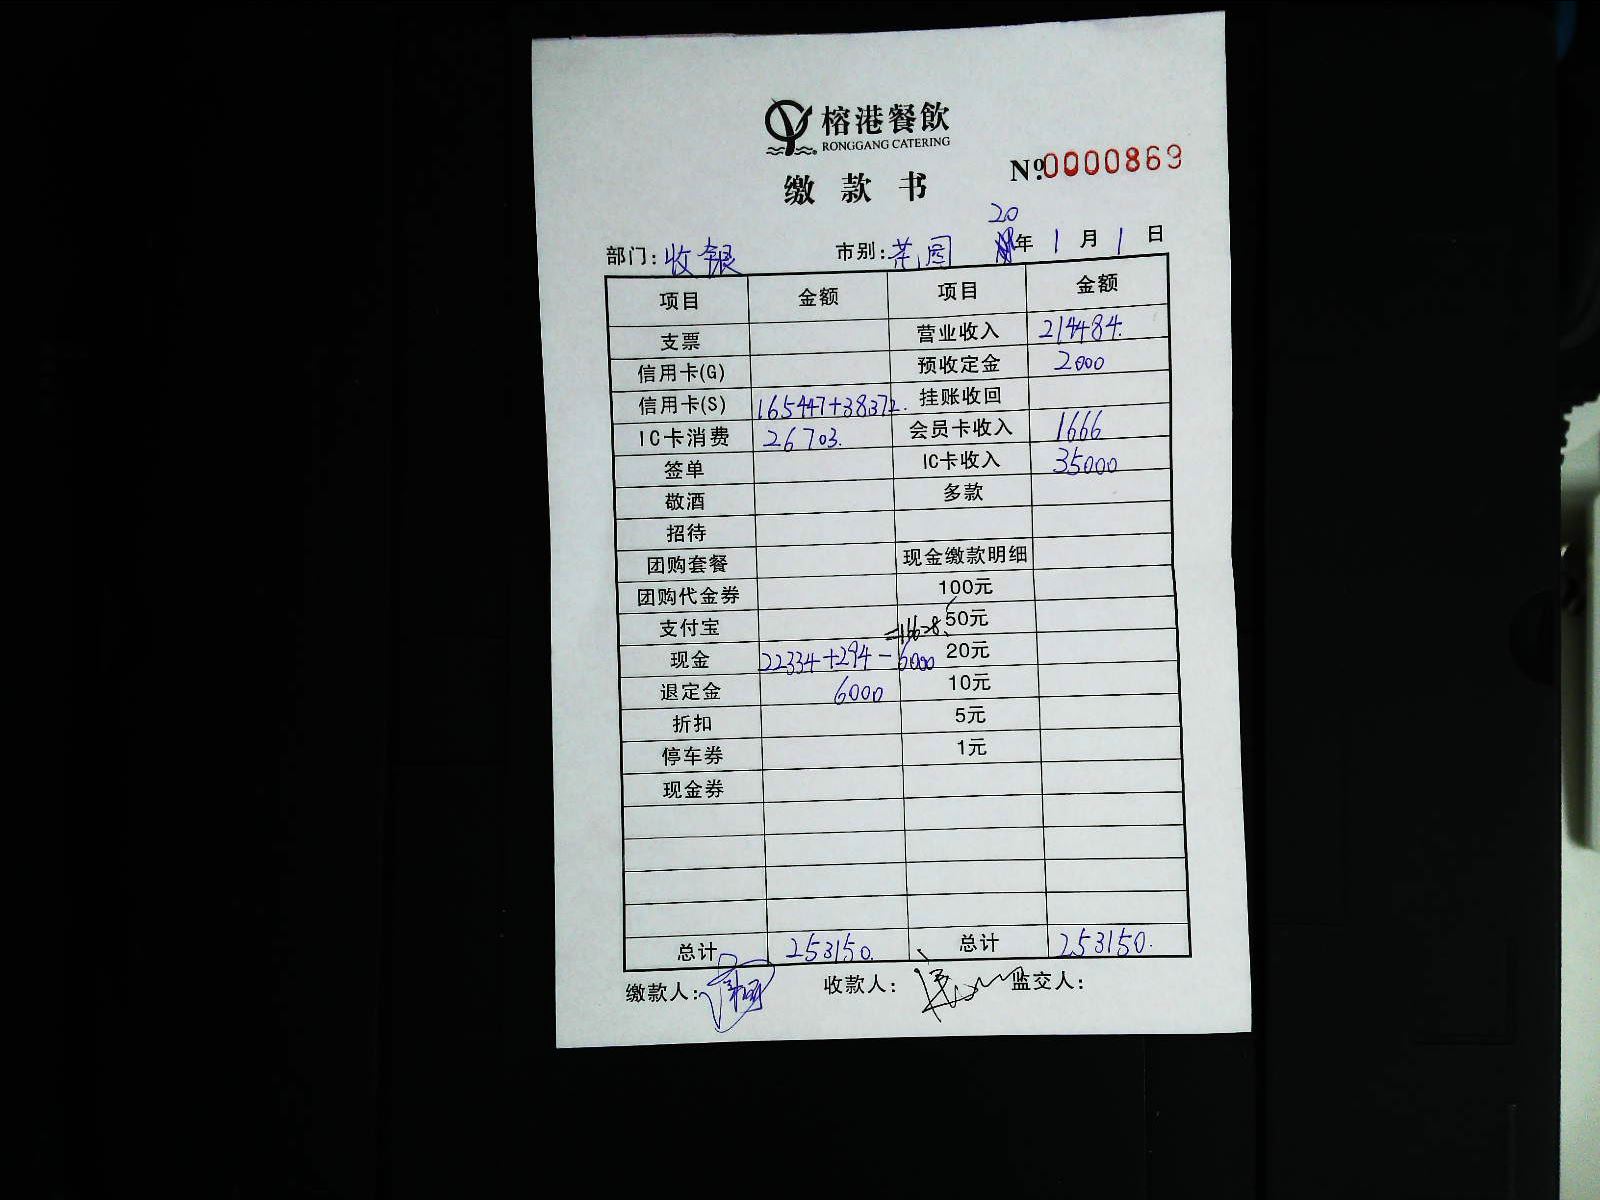 榕港餐飲
RONGGANG CATERING
缴款书
№0000869
20
部门:收银 市别:花园 年 1 月 1 日
项目 金额 项目 金额
支票 营业收入 214484.
信用卡(G) 预收定金 2000
信用卡(S) 165447+38372. 挂账收回
IC卡消费 26703. 会员卡收入 1666
签单 IC卡收入 35000
敬酒 多款
招待
团购套餐 现金缴款明细
团购代金券 100元
支付宝 =16628. 50元
现金 22334+294-6000 20元
退定金 6000 10元
折扣 5元
停车券 1元
现金券
总计 253150. 总计 253150.
缴款人: 收款人: 监交人: